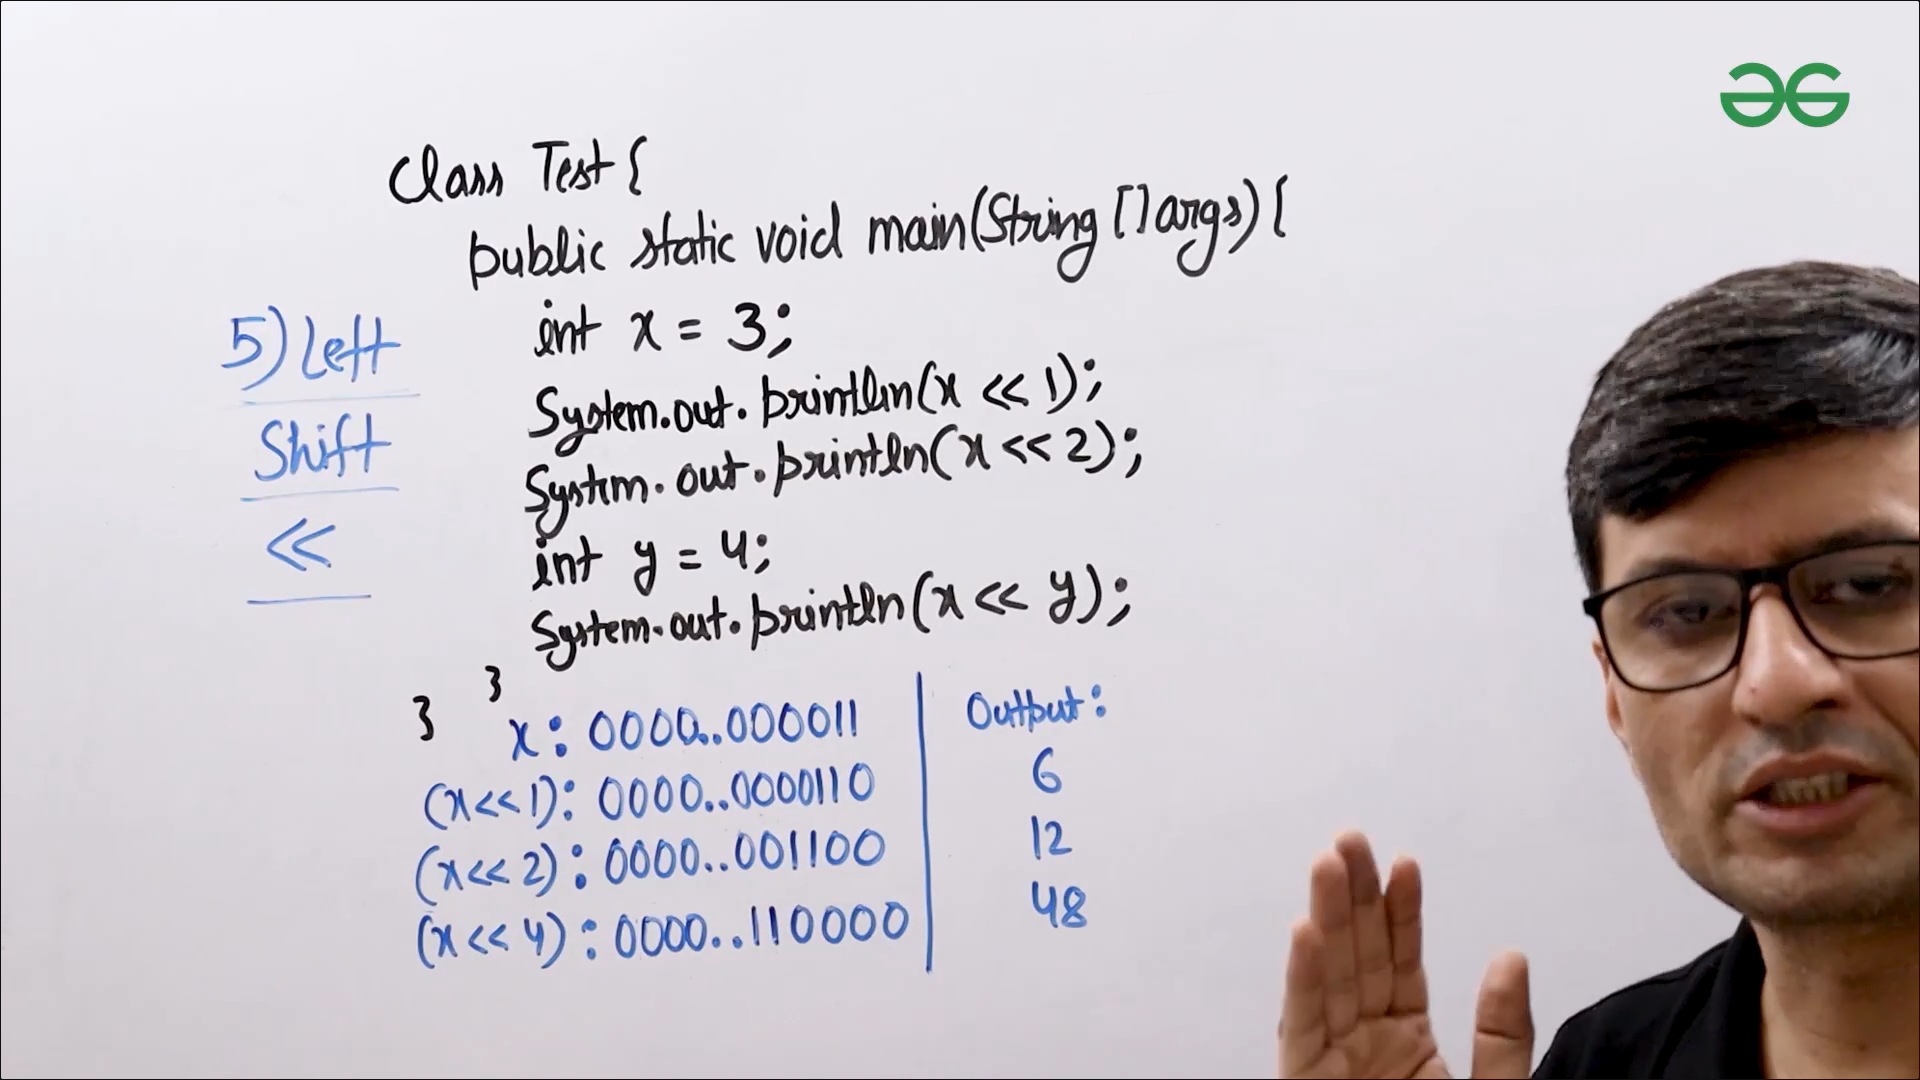 Class Test {
public static void main(String [] args) {
int x = 3;
System.out.println(x << 1);
System.out.println(x << 2);
int y = 4;
System.out.println(x << y);
}
}
5) Left
Shift
<<
x : 0000..000011
(x<<1): 0000..0000110
(x<<2) : 0000..001100
(x<<4) : 0000..110000
Output:
6
12
48